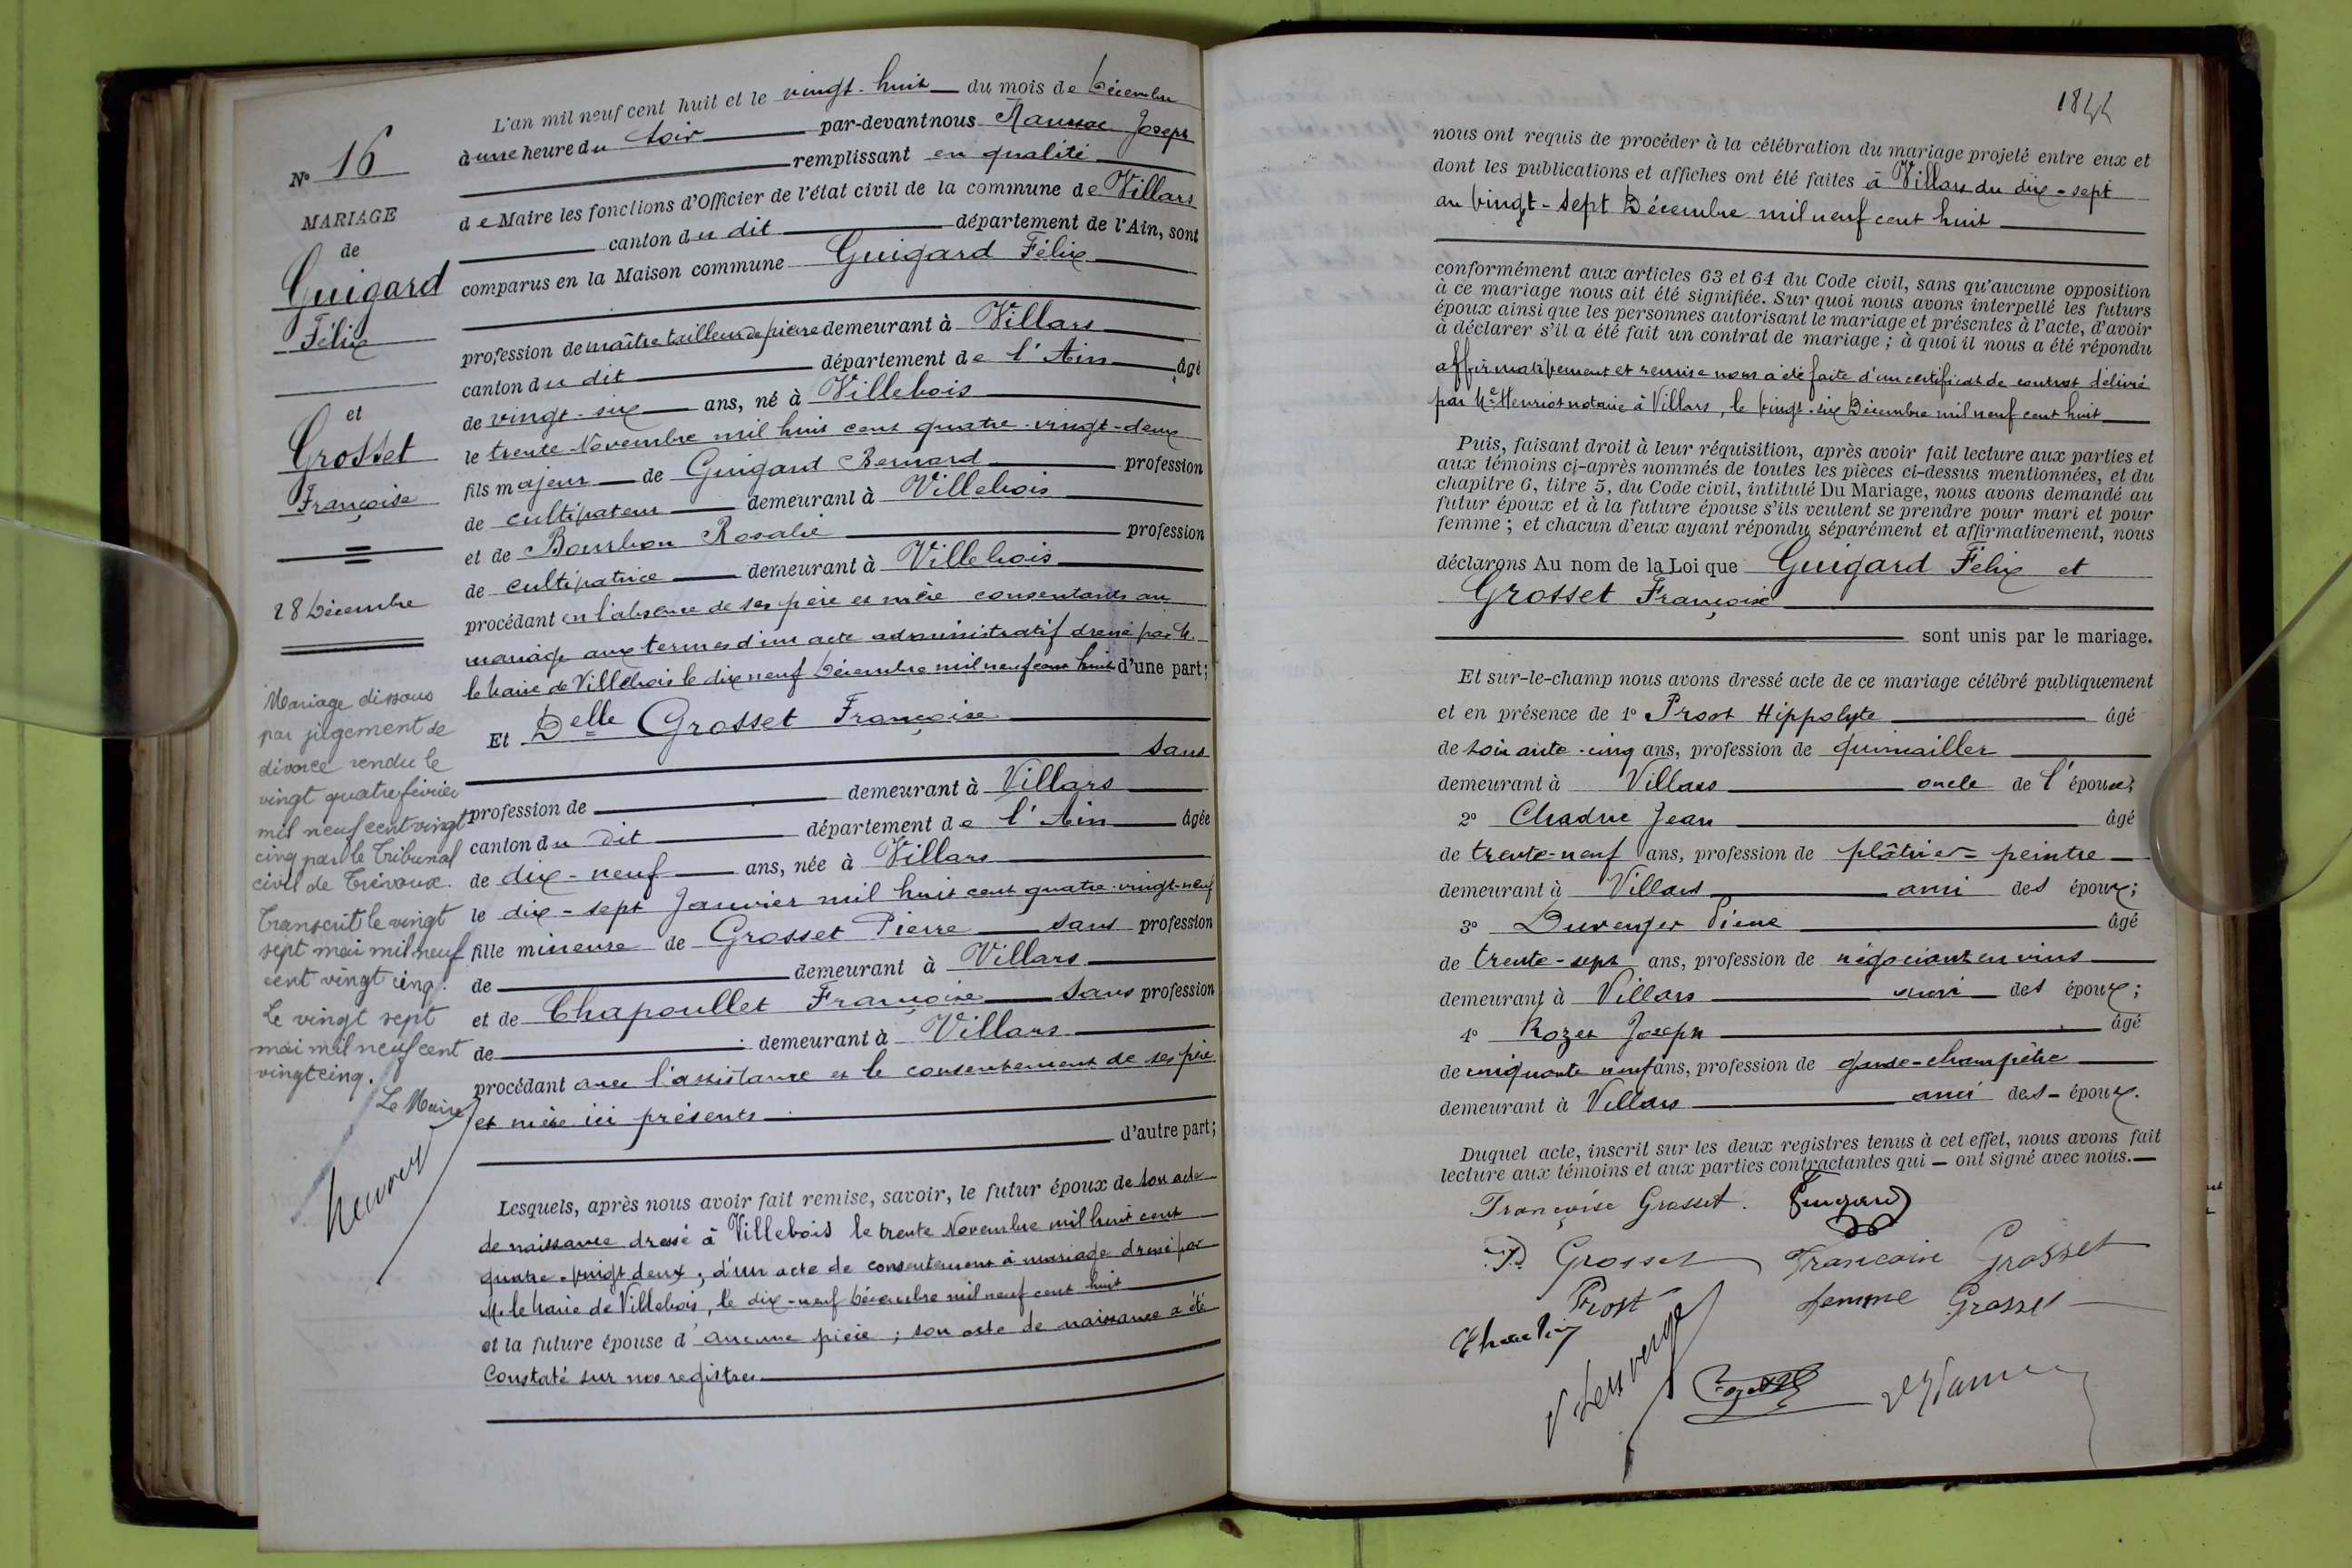 N° 16
MARIAGE
de
Guigard
Félix
et
Grosset
Françoise
28 Décembre
Mariage dissous
par jugement de
divorce rendu le
vingt quatre février
mil neuf cent vingt
cinq par le Tribunal
civil de Trévoux.
Transcrit le vingt
sept mai mil neuf
cent vingt cinq.
Le vingt sept
mai mil neuf cent
vingt cinq.
Le Maire
L'an mil neuf cent huit et le vingt-huit du mois de Décembre
à une heure du soir par-devant nous Joseph
remplissant en qualité
de Maire les fonctions d'Officier de l'état civil de la commune de Villars
canton du dit département de l'Ain, sont
comparus en la Maison commune Guigard Félix
profession de maître tailleur de pierre demeurant à Villars
canton du dit département de l'Ain âgé
de vingt-six ans, né à Villebois
le trente Novembre mil huit cent quatre-vingt-deux
fils majeur de Guigard Bernard profession
de cultivateur demeurant à Villebois
et de Bourbon Rosalie profession
de cultivatrice demeurant à Villebois
procédant en l'absence de ses père et mère consentants au
mariage aux termes d'un acte administratif dressé par M.
le Maire de Villebois le dix neuf Décembre mil neuf cent huit d'une part;
Et Delle Grosset Françoise
sans
profession de demeurant à Villars
canton du dit département de l'Ain âgée
de dix-neuf ans, née à Villars
le dix-sept Janvier mil huit cent quatre-vingt-neuf
fille mineure de Grosset Pierre sans profession
de demeurant à Villars
et de Chapoullet Françoise sans profession
de demeurant à Villars
procédant avec l'assistance et le consentement de ses père
et mère ici présents
d'autre part;
Lesquels, après nous avoir fait remise, savoir, le futur époux de son acte
de naissance dressé à Villebois le trente Novembre mil huit cent
quatre-vingt deux; d'un acte de consentement à mariage dressé par
M. le Maire de Villebois, le dix-neuf Décembre mil neuf cent huit
et la future épouse d'aucune pièce; son acte de naissance a été
constaté sur nos registres
184
nous ont requis de procéder à la célébration du mariage projeté entre eux et
dont les publications et affiches ont été faites à Villars du dix-sept
au vingt-sept Décembre mil neuf cent huit
conformément aux articles 63 et 64 du Code civil, sans qu'aucune opposition
à ce mariage nous ait été signifiée. Sur quoi nous avons interpellé les futurs
époux ainsi que les personnes autorisant le mariage et présentes à l'acte, d'avoir
à déclarer s'il a été fait un contrat de mariage; à quoi il nous a été répondu
affirmativement et remise nous a été faite d'un certificat de contrat délivré
par Me Henriot notaire à Villars, le vingt-six Décembre mil neuf cent huit
Puis, faisant droit à leur réquisition, après avoir fait lecture aux parties et
aux témoins ci-après nommés de toutes les pièces ci-dessus mentionnées, et du
chapitre 6, titre 5, du Code civil, intitulé Du Mariage, nous avons demandé au
futur époux et à la future épouse s'ils veulent se prendre pour mari et pour
femme; et chacun d'eux ayant répondu séparément et affirmativement, nous
déclarons Au nom de la Loi que Guigard Félix et
Grosset Françoise
sont unis par le mariage.
Et sur-le-champ nous avons dressé acte de ce mariage célébré publiquement
et en présence de 1° Prost Hippolyte âgé
de soixante-cinq ans, profession de quincailler
demeurant à Villars oncle de l'épouse;
2° Jean âgé
de trente-neuf ans, profession de plâtrier-peintre
demeurant à Villars ami des époux;
3° Duverger Pierre âgé
de trente-sept ans, profession de négociant en vins
demeurant à Villars ami des époux;
4° Rozet Joseph âgé
de cinquante neuf ans, profession de garde-champêtre
demeurant à Villars ami des époux.
Duquel acte, inscrit sur les deux registres tenus à cet effet, nous avons fait
lecture aux témoins et aux parties contractantes qui — ont signé avec nous.—
Françoise Grosset. Guigard
P Grosset Francoise Grosset
Prost femme Grosset
Duverger